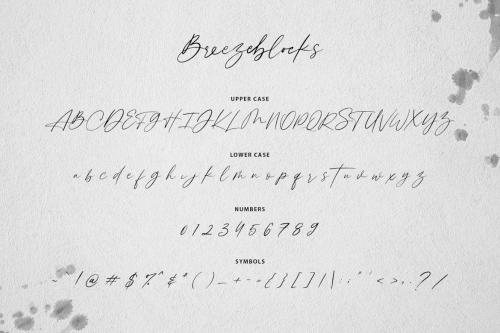 Breezeblocks
UPPER CASE
ABCDEFGHIJKLMNOPQRSTUVWXYZ
LOWER CASE
abcdefghijklmnopqrstuvwxyz
NUMBERS
0123456789
SYMBOLS
~`!@#$%^&*()_+-={}[]|\:;"'<>,.?/